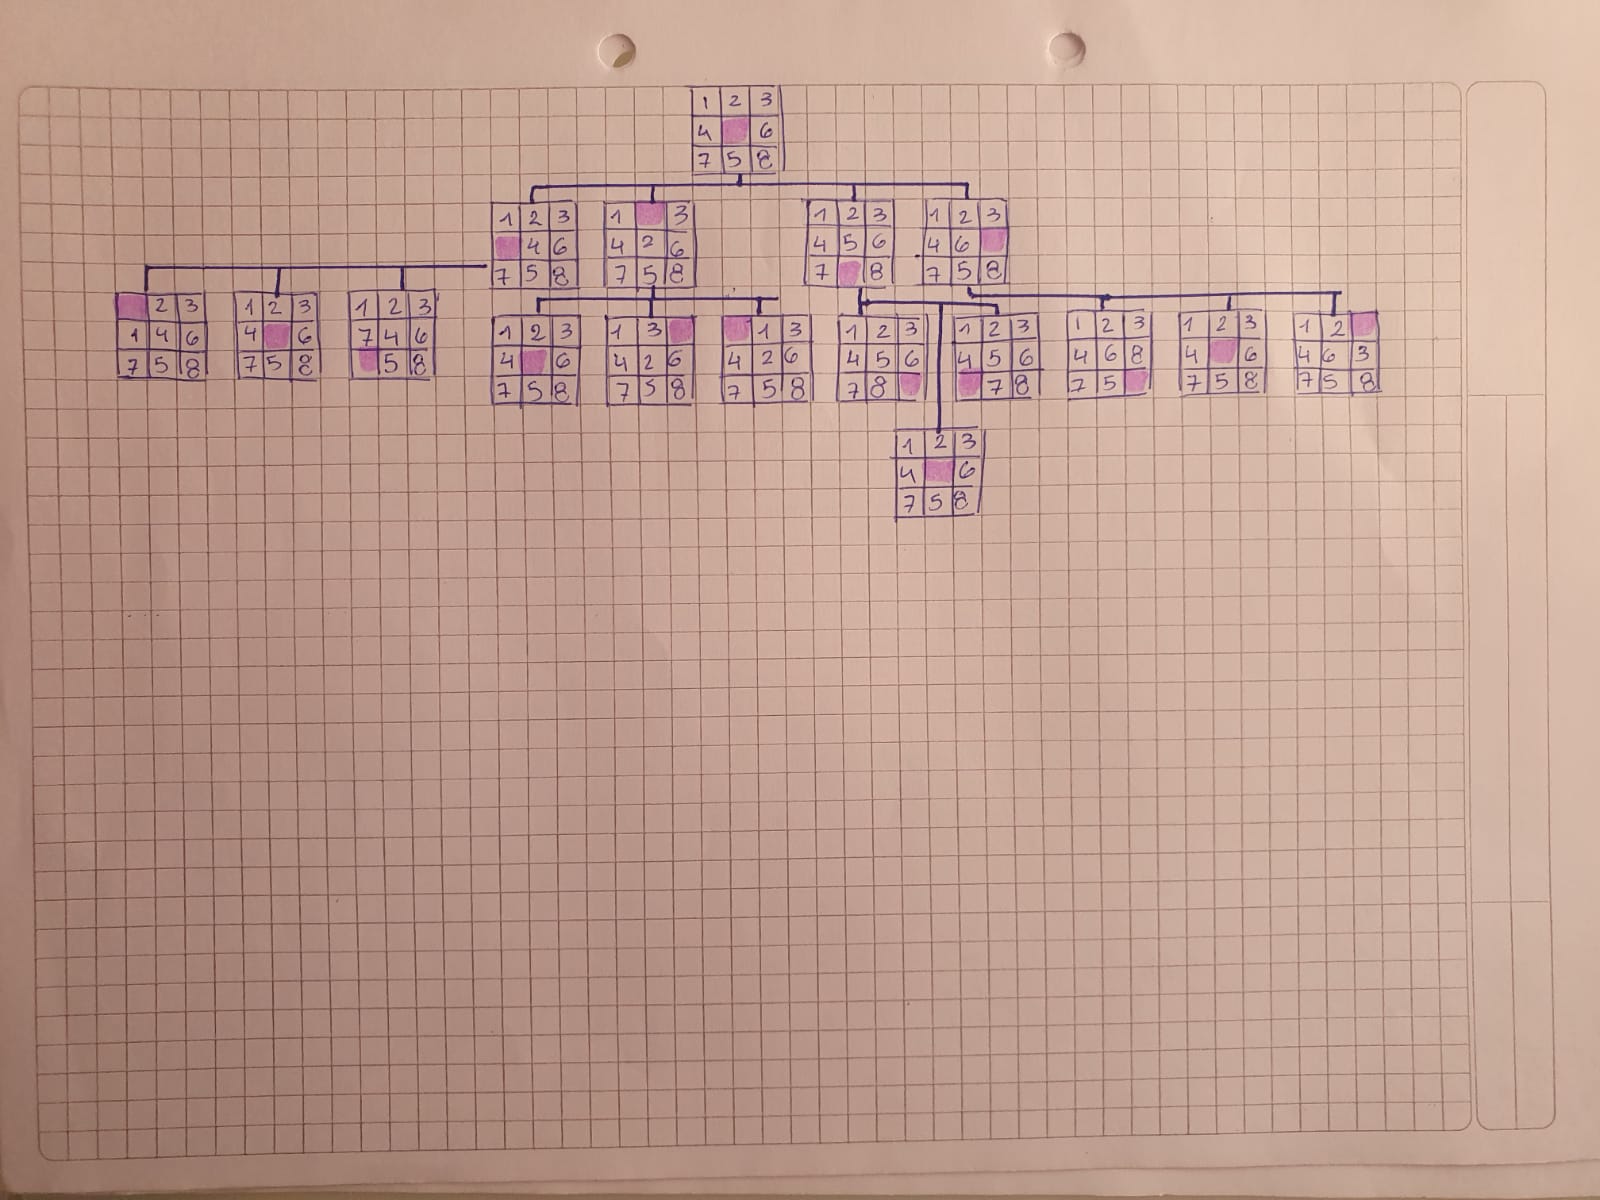 1 2 3
4 6
7 5 8
1 2 3
4 6
7 5 8
1 3
4 2 6
7 5 8
1 2 3
4 5 6
7 8
1 2 3
4 6
7 5 8
2 3
1 4 6
7 5 8
1 2 3
4 6
7 5 8
1 2 3
7 4 6
5 8
1 2 3
4 6
7 5 8
1 3
4 2 6
7 5 8
1 3
4 2 6
7 5 8
1 2 3
4 5 6
7 8
1 2 3
4 5 6
7 8
1 2 3
4 6 8
7 5
1 2 3
4 6
7 5 8
1 2
4 6 3
7 5 8
1 2 3
4 6
7 5 8